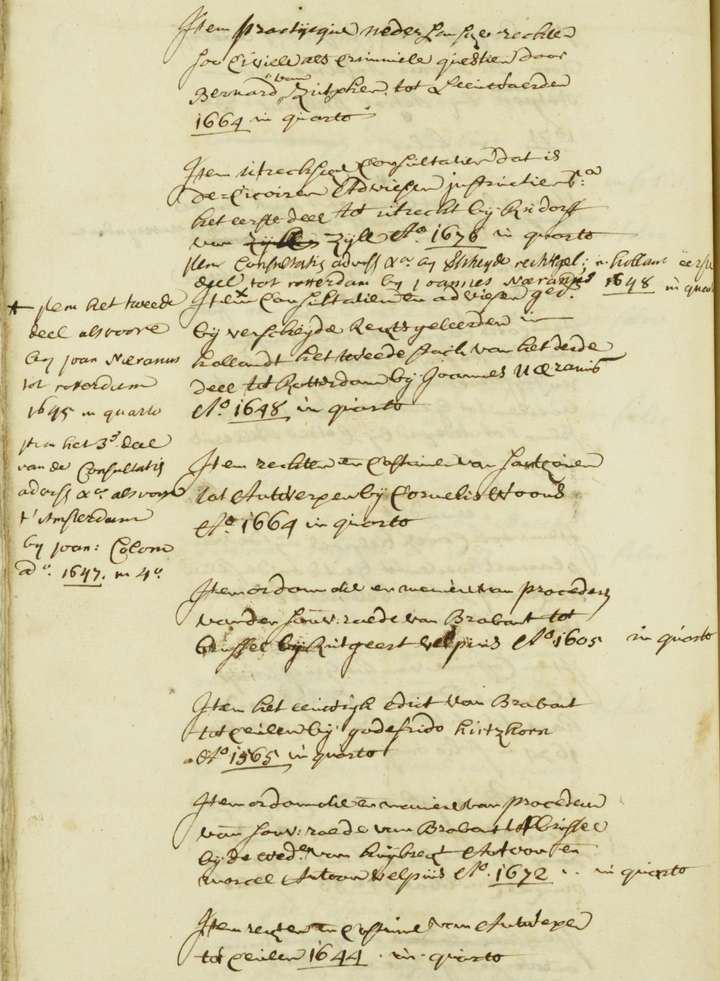 Item practijcque nederlansche rechten
soo Civiele als Criminiele questien door
Bernard van Zutphen tot Leeuwaerden
1664 in quarto
Item utrechse Consultatien dat is
het eerste deel tot utrecht by Ridorff
van Zijll Ao. 1676 in quarto
Item Consultatis advijs &a by rechtsgel: in hollant eerste
deel, tot rotterdam by Joannes Næranus 1648 in quarto
Item Consultatien en adviesen ged.
bij verscheyde Rechtsgeleerden in
hollandt het tweede stuck van het derde
deel tot Rotterdam bij Joannes Næranus
Ao. 1648 in quarto
* Item het tweede
deel alsvoore
by Joan Næranus
tot rotterdam
1645 in quarto
Item het 3e deel
van de Consultatis
advijs &a alsvoore
t'Amsterdam
by Joan: Colom
ao. 1647. in 4o.
Item rechten en Costumen van Santhoven
tot Antwerpen bij Cornelis Woons
Ao. 1664 in quarto
Item ordonnantie en maniere van procederen
van den souv: raede van Brabant tot
brussel bij Rutgeert Velpius Ao. 1605 in quarto
Item het eeuwigh edict van Brabant
tot Ceulen bij godefrido hirtzhorn
Ao 1565 in quarto
Item ordonnantie en maniere van procederen
van souv: raede van Brabant tot Brussel
bij de wede. van Antoon en
marcel Antoon velpius Ao. 1672 in quarto
Item rechten en Costume van Antwerpen
tot Ceulen 1644 in quarto